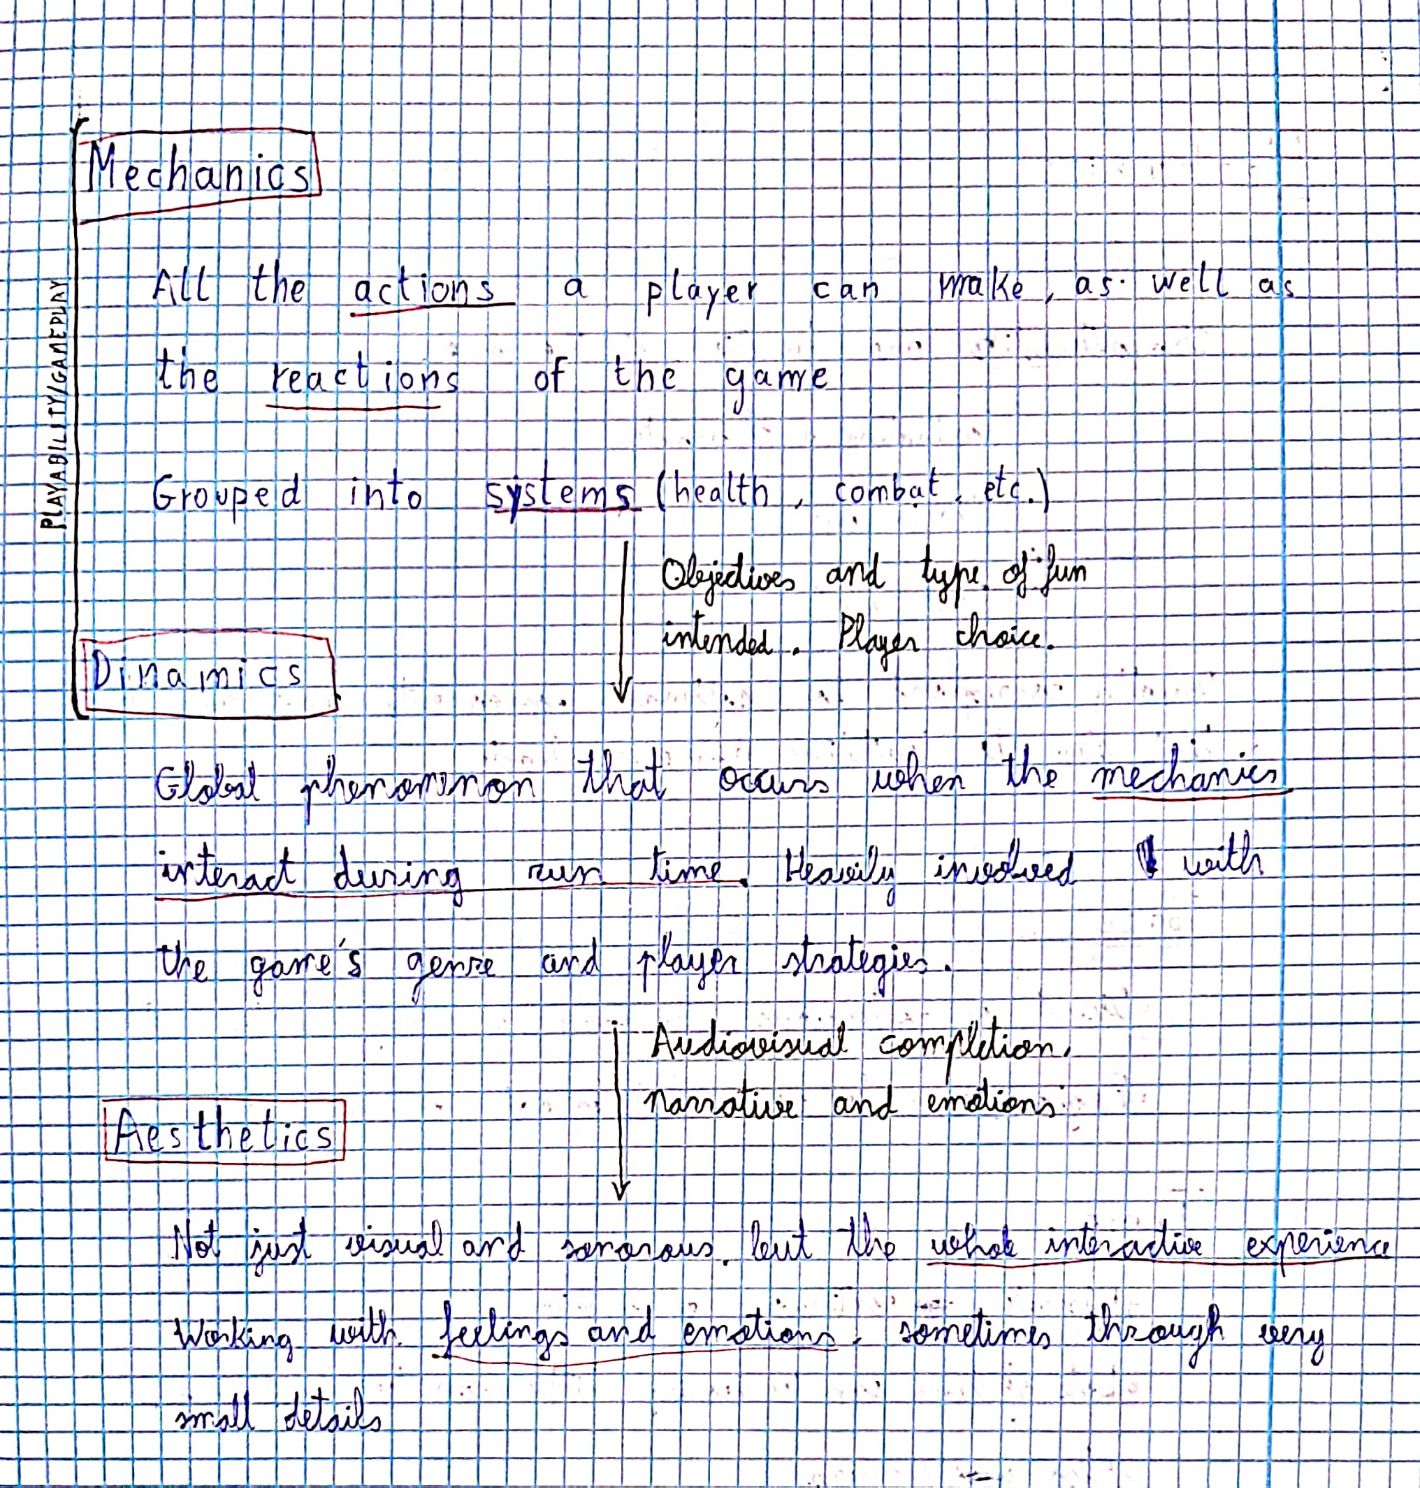 Mechanics
All the actions a player can make, as well as
the reactions of the game
PLAYABILITY/GAMEPLAY
Grouped into systems (health, combat, etc.)
Objectives and type of fun
intended. Player choice.
Dinamics
Global phenomenon that occurs when the mechanics
interact during run time. Heavily involved with
the game's genre and player strategies.
Audiovisual completion,
narrative and emotions
Aesthetics
Not just visual and sonorous, but the whole interactive experience
Working with feelings and emotions, sometimes through very
small details